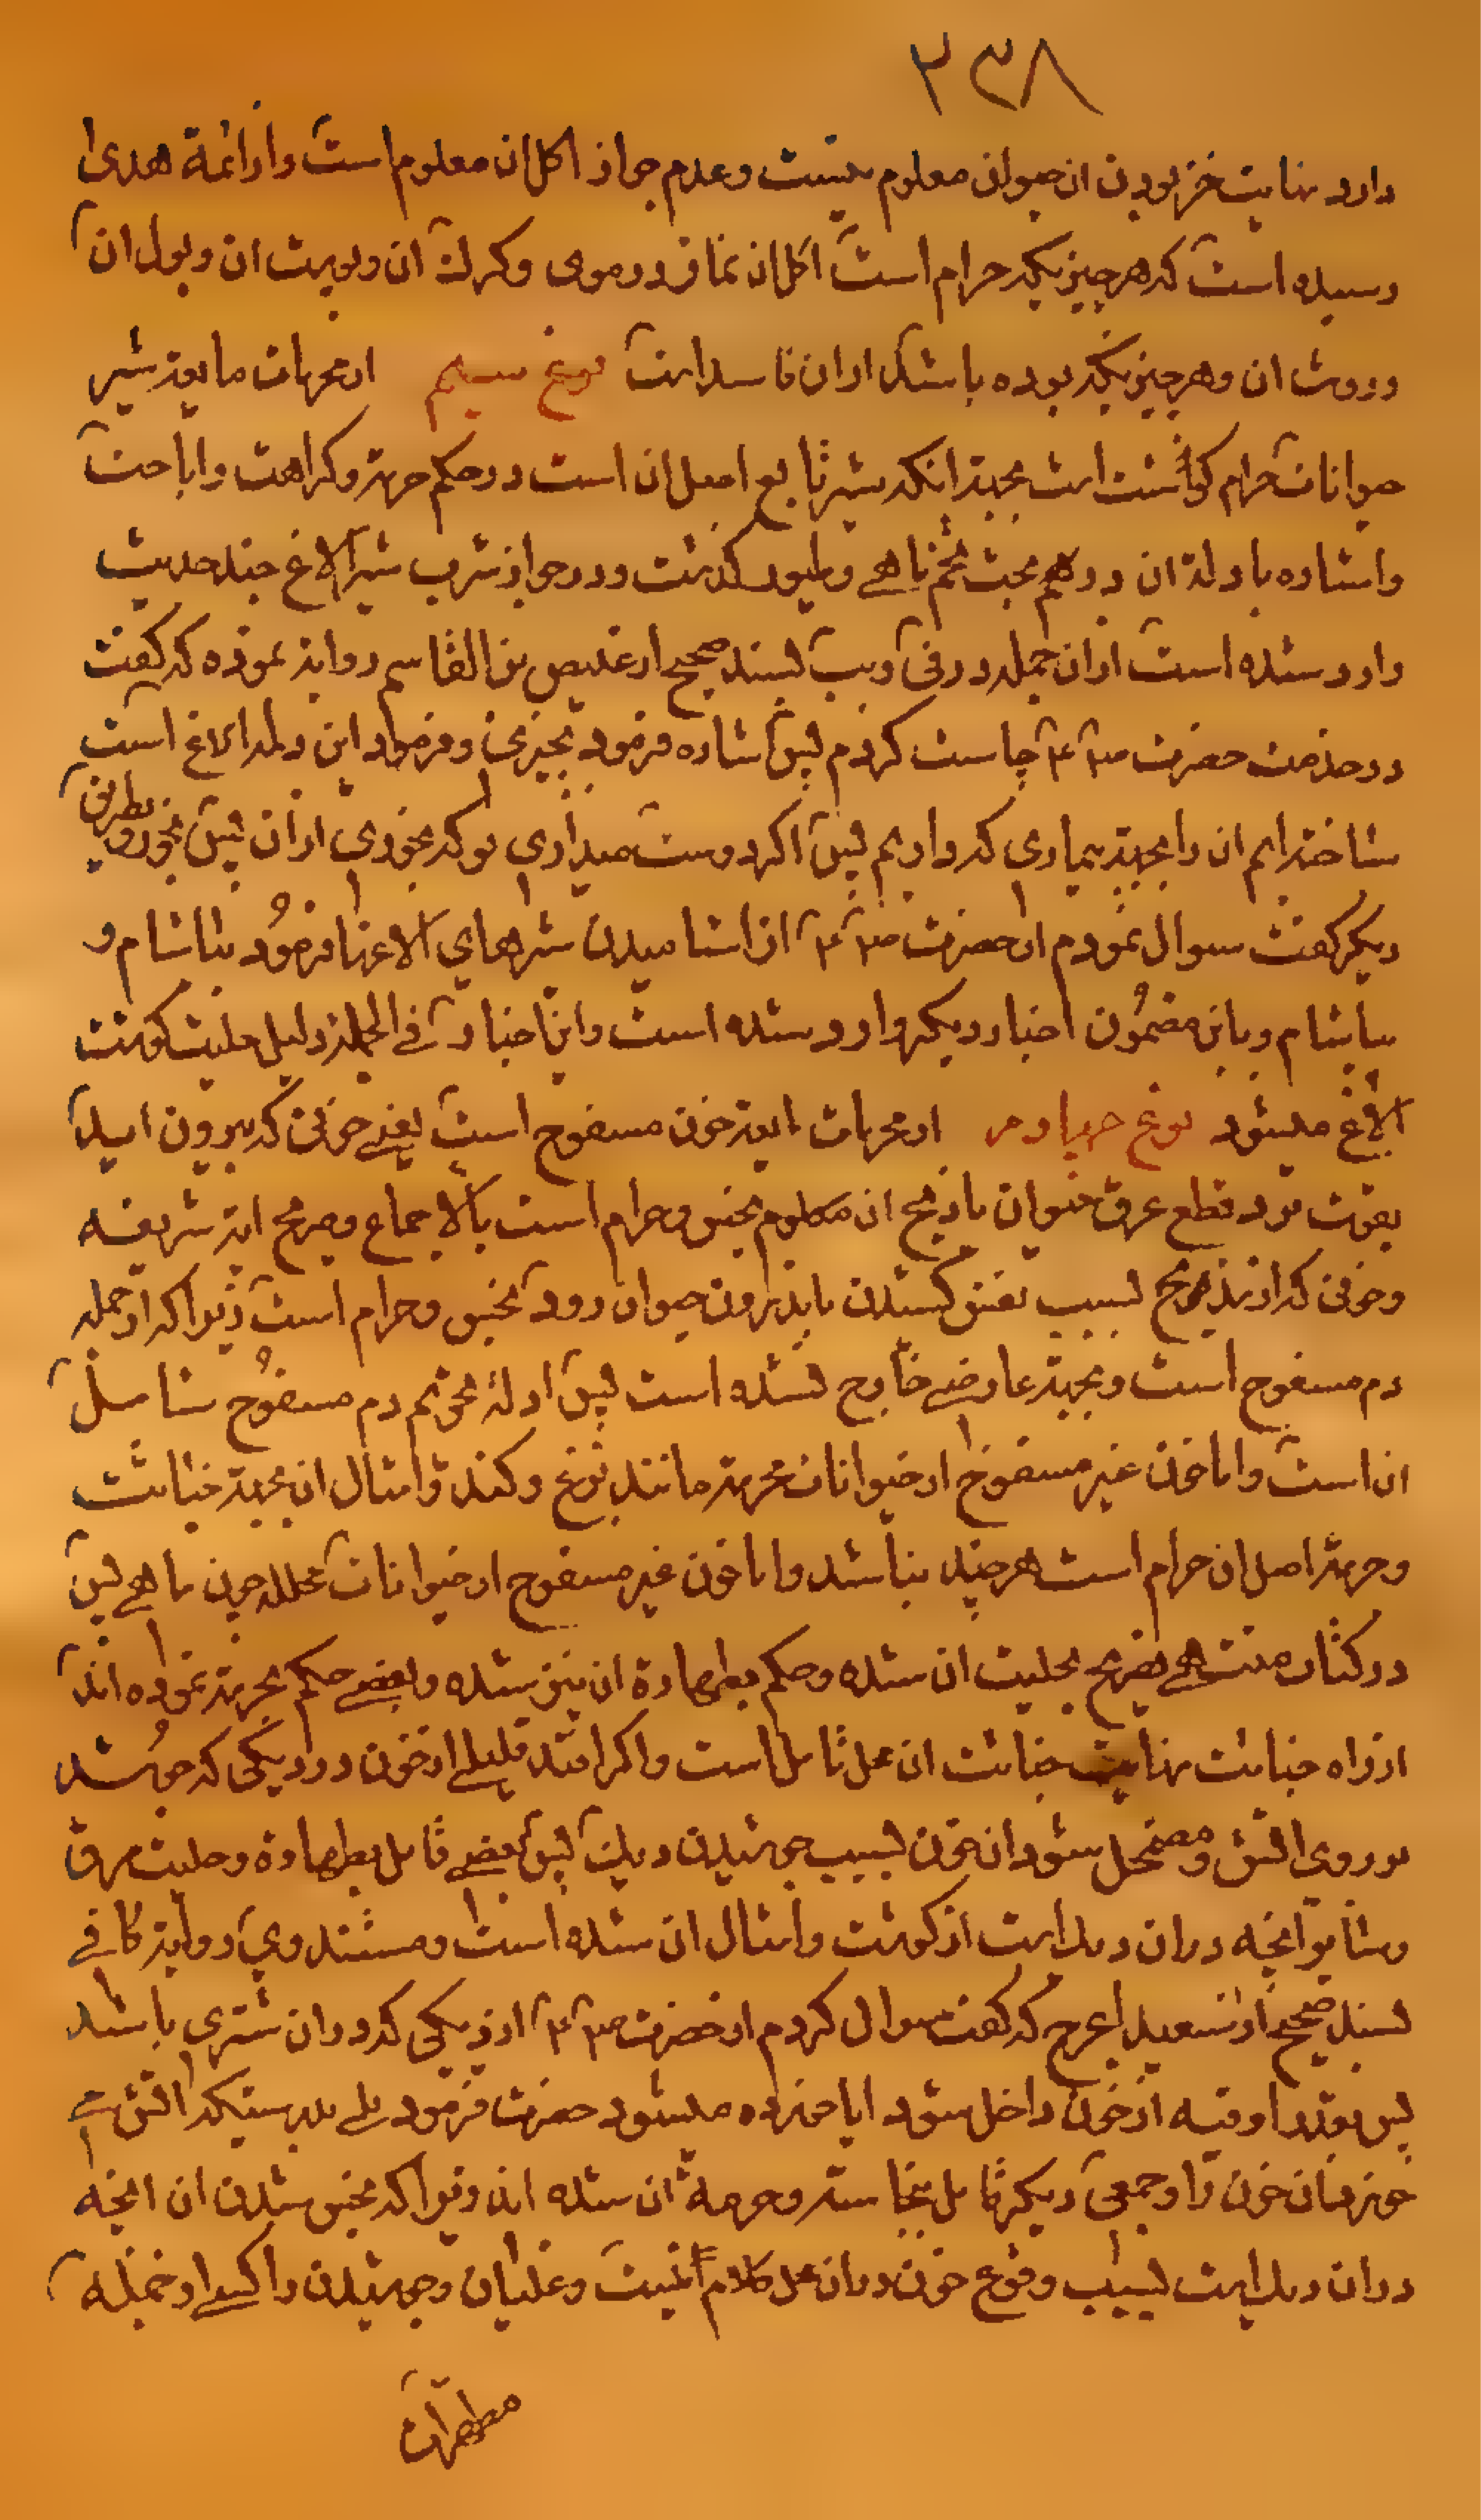 ٢٣٨
دارد نهایت خز بودن ان حیوان معلوم نیست وعدم جواز اکل ان معلوم است واز ائمة هدی
رسیده است که هر چیزیکه حرام است اکل ان نماز در موی وکرك ان وپوست ان وبول ان
وروث ان وهر چیزیکه بوده باشد از ان فاسد است نوع سیم از محرمات مایعه شیر
حیوانات حرام گوشت است بجهة انکه شیر تابع اصل ان است در حکم حرمة وکراهت واباحت
واشاره بادلة ان در بحث تخم ماهی وطیور گذشت ودر جواز شرب شیر الاغ چند حدیث
وارد شده است از ان جمله در فی ویب بسند صحیح از عیص بن القاسم روایة نموده که گفت
در خدمت حضرت ص٢ع٢ چاشت کردم پس اشاره فرمود بچیزی وفرمود این از الاغ است
ساخته ایم ان را بجهة بیماری که داریم پس اگر دوست میداری تو که بخوری از ان پس بخور وبطریق
دیگر گفت سوال نمودم از حضرت ص٢ع٢ از اشامیدن شیرهای الاغها فرمود بیاشام و
بیاشام وباین مضمون اخبار دیگر وارد شده است واین اخبار فی الجملة دلیل حلیت گوشت
الاغ میشود نوع چهارم از محرمات مایعة خون مسفوح است یعنے خونی که بیرون اید
بقوت نزد قطع عرق حیوان یا ذبح ان معلوم نجس وحرام است بالاجماع وصریح ایة شریفه
وخونی که از مذبح بسبب نفس کشیدن باندرون حیوان رود نجس وحرام است زیرا که از جمله
دم مسفوح است وبجهة عارضے خارج نشده است پس ادلة تحریم دم مسفوح شامل
ان است واما خون غیر مسفوح از حیوانات محرمة مانند وزغ وکنه وامثال ان بجهة خباثت
وحرمة اصل ان حرام است هر چند نباشد واما خون غیر مسفوح از حیوانات محلله چون ماهے پس
در کتاب منتهے تصریح بحلیت ان شده وحکم بطهارة ان نیز شده وبعضے حکم بحرمة نموده اند
از راه خباثت نهایت خباثت ان محل تامل است واگر افتد قلیلے از خون در دیگی که جوشد
بر روی اتش ومضمحل شود ان خون بسبب جوشیدن دیك پس بعضے قائل بطهارة وحلیت مرق
وسایر انچه در ان دیك است از گوشت وامثال ان شده است ومستند وی روایة کافے
بسند صحیح از سعید اعرج که گفت سوال کردم از حضرت ص٢ع٢ از دیگی که در ان شتری باشد
پس بقدر اوقیه از خون داخل شود ایا خورده میشود حضرت فرمود بلے بدرستیکه اتش مے
خورد ان خون را وجمعی دیگر قائل بنجاسة وحرمة ان شده اند زیرا که نجس شدن ان انچه
در ان دیك است بسبب وقوع خون در ان محل کلام نیست وغلیان وجوشیدن را کسے از جمله
مطهرات